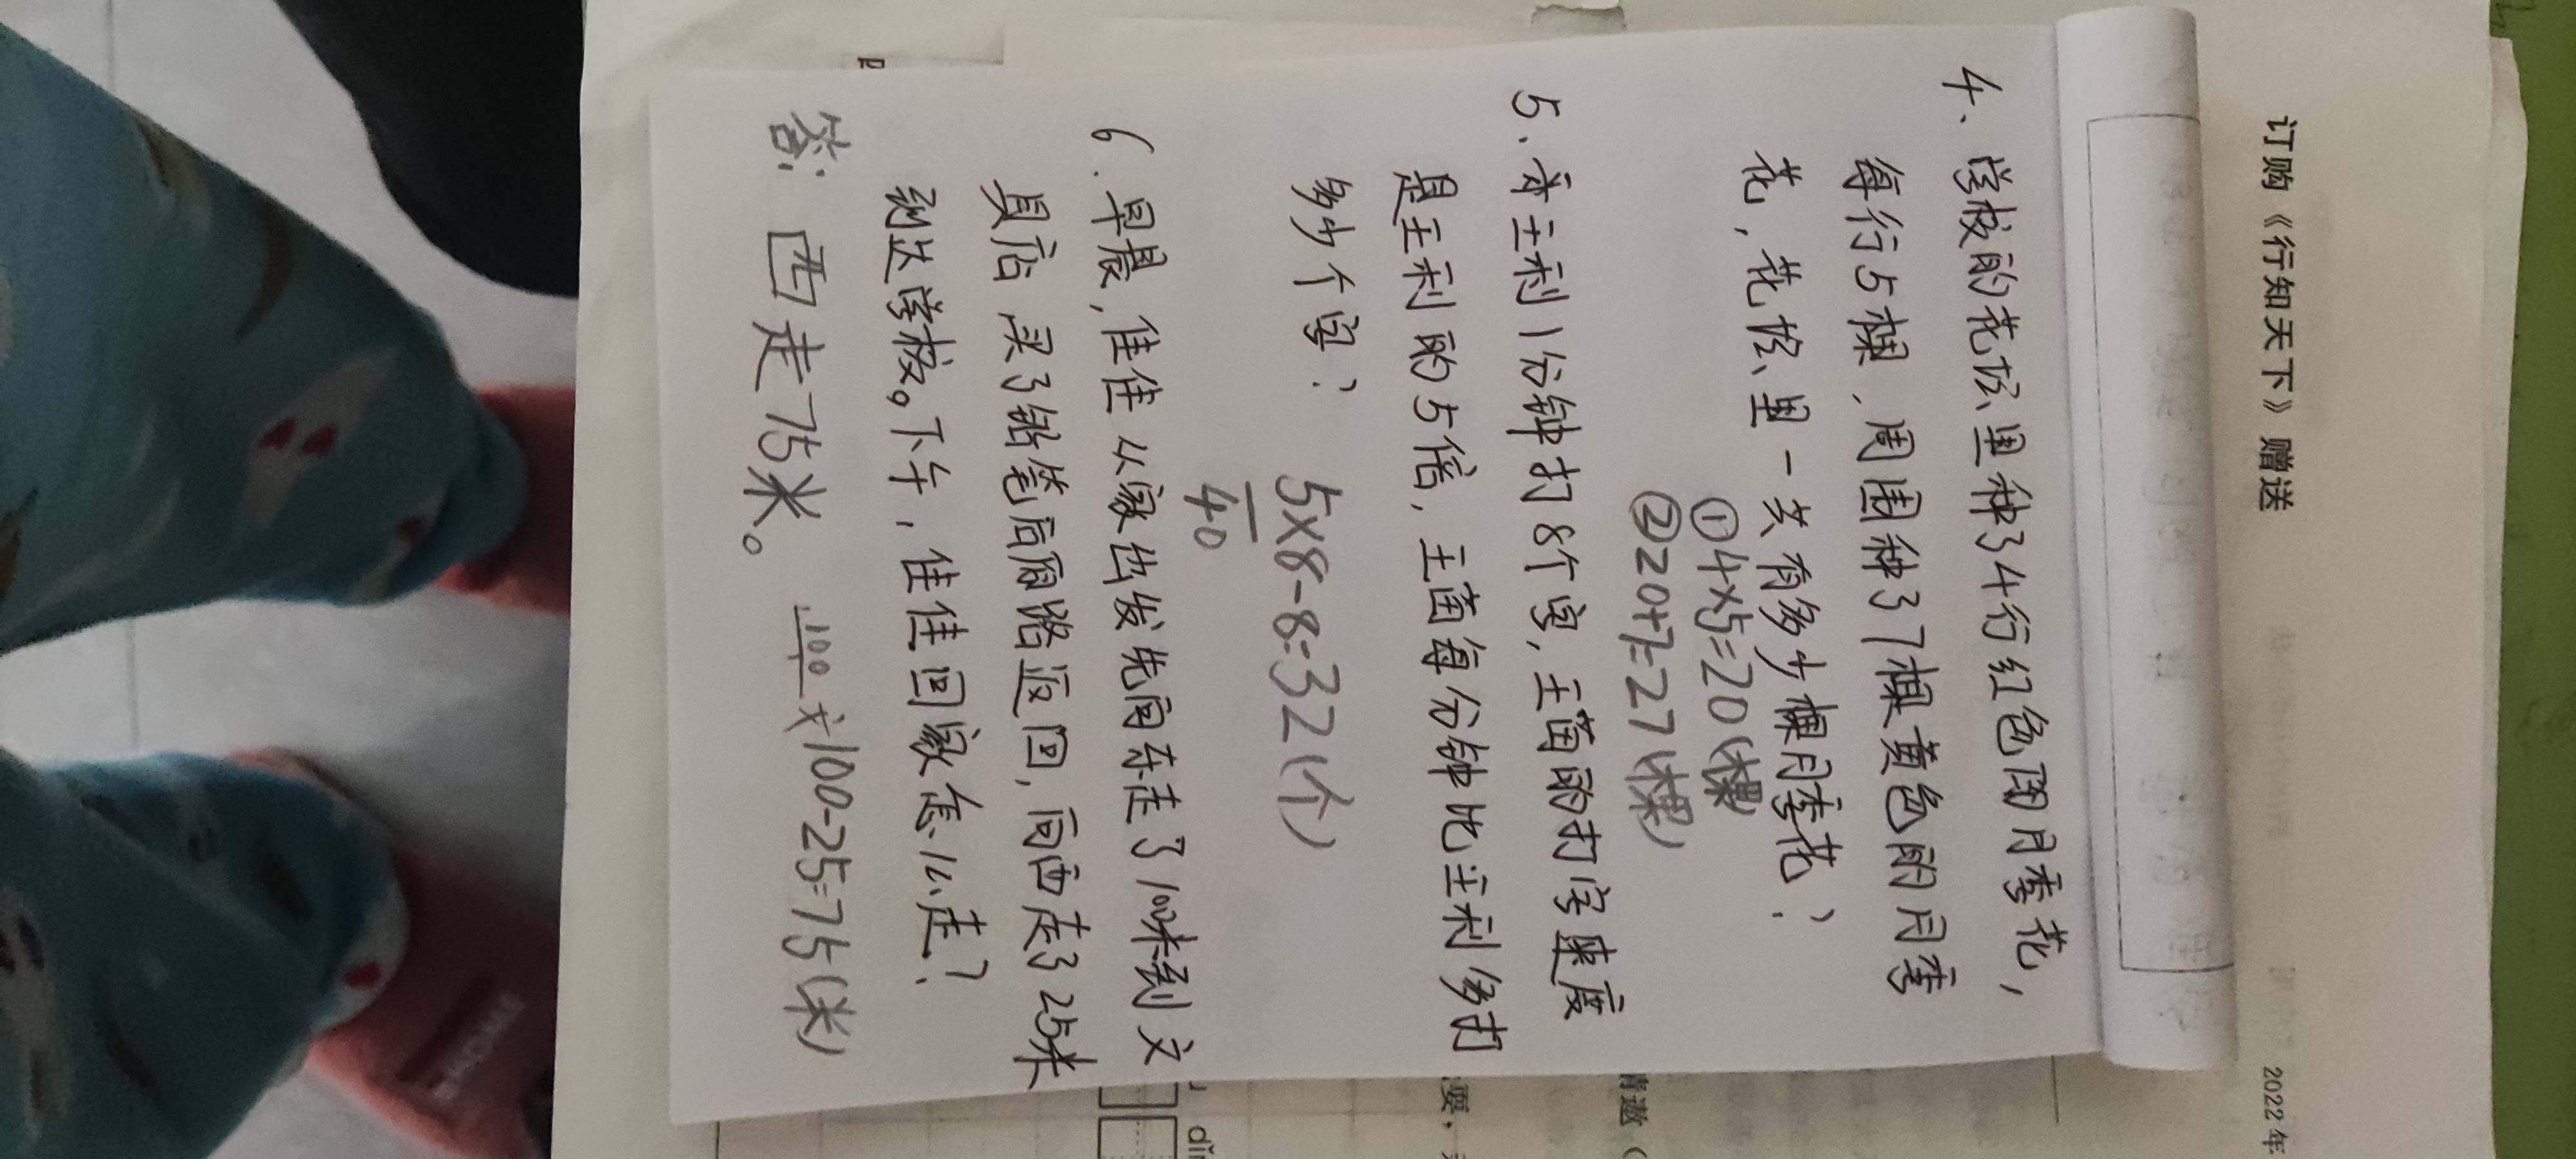 4、学校的花坛里种了4行红色的月季花，
每行5棵、周围种了7棵黄色的月季
花，花坛里一共有多少棵月季花？
①4×5=20(棵)
②20+7=27(棵)
5、李主利1分钟打8个字，王茵的打字速度
是主利的5倍，王茵每分钟比主利多打
多少个字？
5×8-8=32(个)
40
6.早晨，佳佳从家出发先向东走了100米到文
具店买了铅笔后原路返回，向西走了25米
到达学校。下午，佳佳回家怎么走？
100-25=75(米)
答：西走75米。
订购《行知天下》赠送
2022年